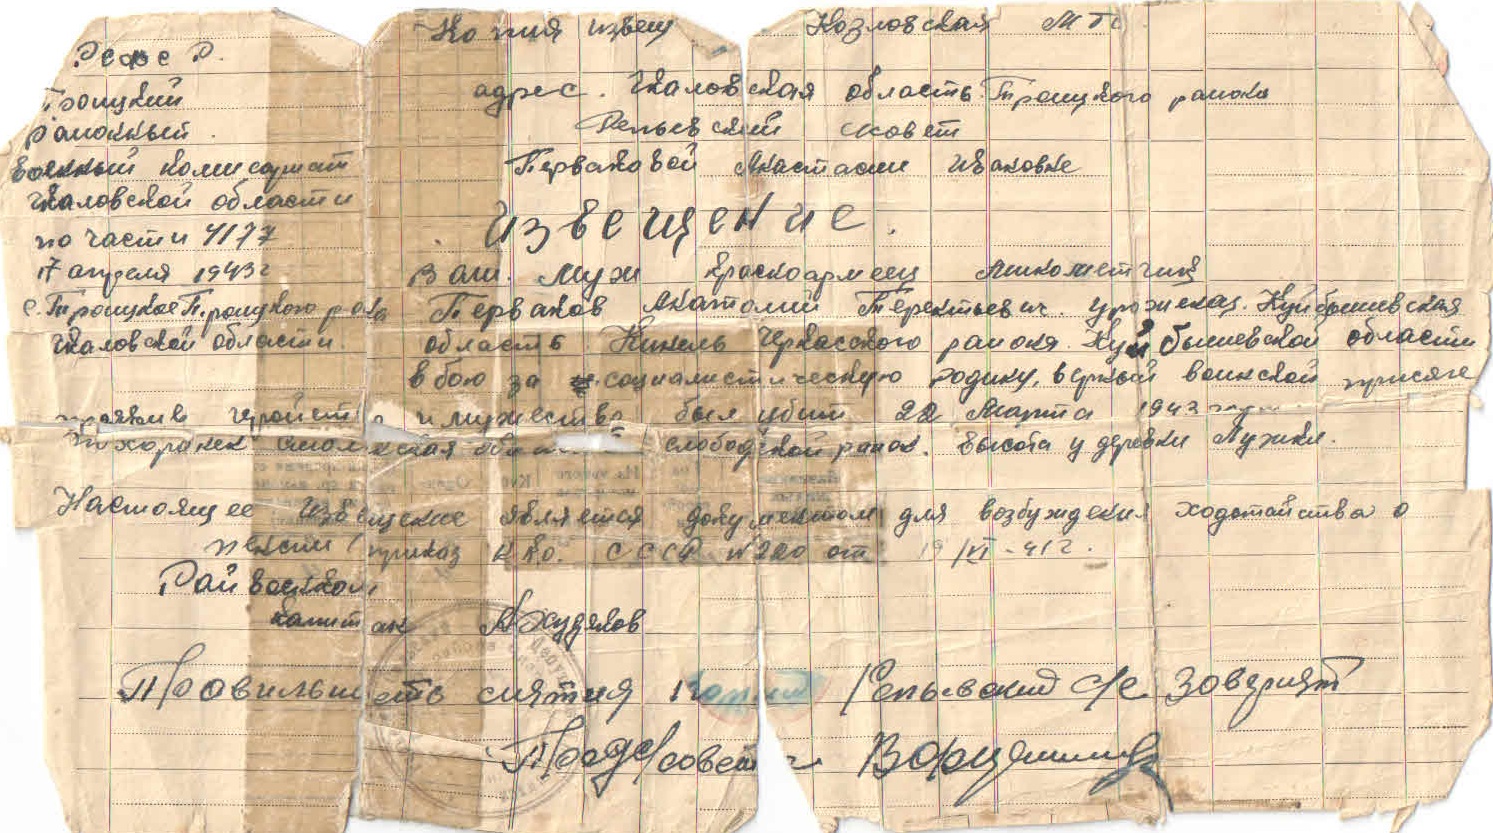 Копия извещ Козловская МТС
РСФСР.
Троицкий
районный
военный комиссариат
Чкаловской области
по части 4177
17 апреля 1943г
с. Троицкое Троицкого р-на
Чкаловской области.
адрес. Чкаловская область Троицкого района
Репьевский совет
Перваковой Анастасии Ивановне
Извещение.
Ваш. муж красноармеец минометчик
Перваков Анатолий Терентьевич. урожен. Куйбышевская
область Кинель Черкасского района. Куйбышевской области
в бою за социалистическую родину, верный воинской присяге
проявив геройство и мужество был убит 22 Марта 1943
Похоронен Смоленская слободской район. Высота у деревни Лужки.
Настоящее извещение является документом для возбуждения ходатайства о
пенсии (приказ Н.К.О. СССР № 220 от 19/VI-41г.
Райвоенком
капитан Худяков
Правильность снятия копии Репьевский с/с заверяет
Пред/совета